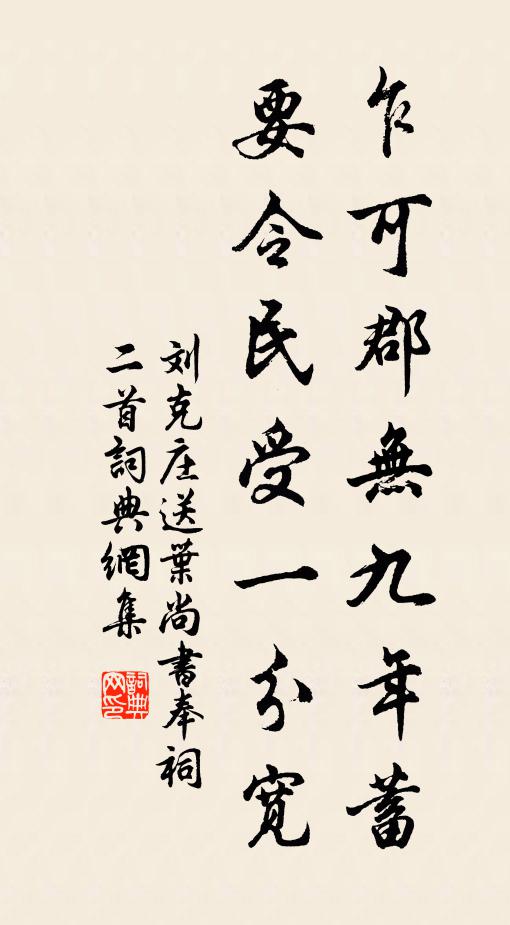 乍可郡無九年蓄
要令民受一分寬
刘克庄送葉尚書奉祠
二首詞典網集
詞典网印